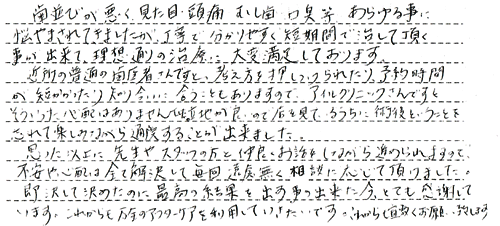 歯並びが悪く見た目、頭痛 むし歯 口臭等 あらゆる事に
悩まされてきましたが、丁寧で 分かりやすく 短期間で 治して頂く
事が 出来て、理想通りの治療に 大変満足しております。
近所の普通の歯医者さんですと、考え方を押しつけられたり、予約時間
が 短かかったり 知り合いに 会うこともありますので、アイルクリニックさんですと
そういった心配はありませんで 立地が良いので 店を見て るうちに 術後ということを
忘れて楽しみながら通院することが出来ました。
思った以上に 先生や スタッフの方と 仲良くお話をしながら 進められますので
不安や心配は全て解決して 毎回 遠慮無く 相談に応じて頂けました。
即決して決めたのに 最高の結果を 出す事が出来た 今、とても 感謝して
います。これからも 万全のアフターケアを利用していきたいです。これからも宜敷くお願い致します